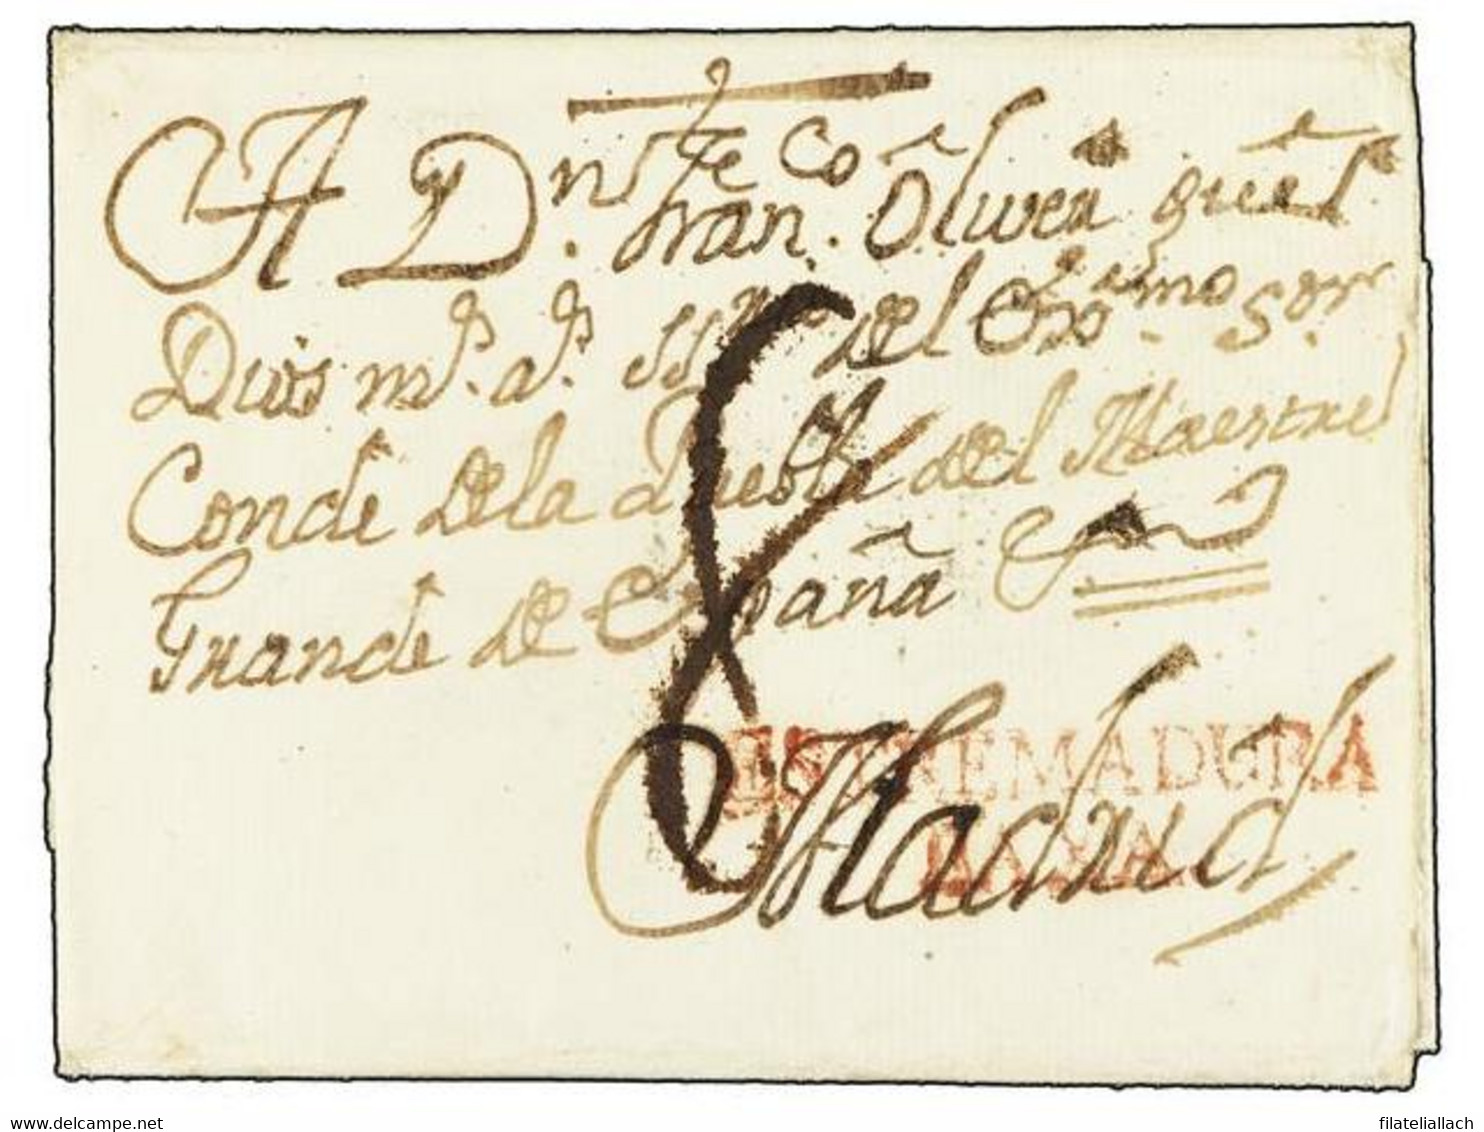 A Dn. Franco. Olivera que el
Dios ms. as. ssrio del Exmo. Sor.
Conde de la Puebla del Maestre
Grande de España
8
ESTREMADURA
BAXA
Madrid
www.delcampe.net
filateliallach